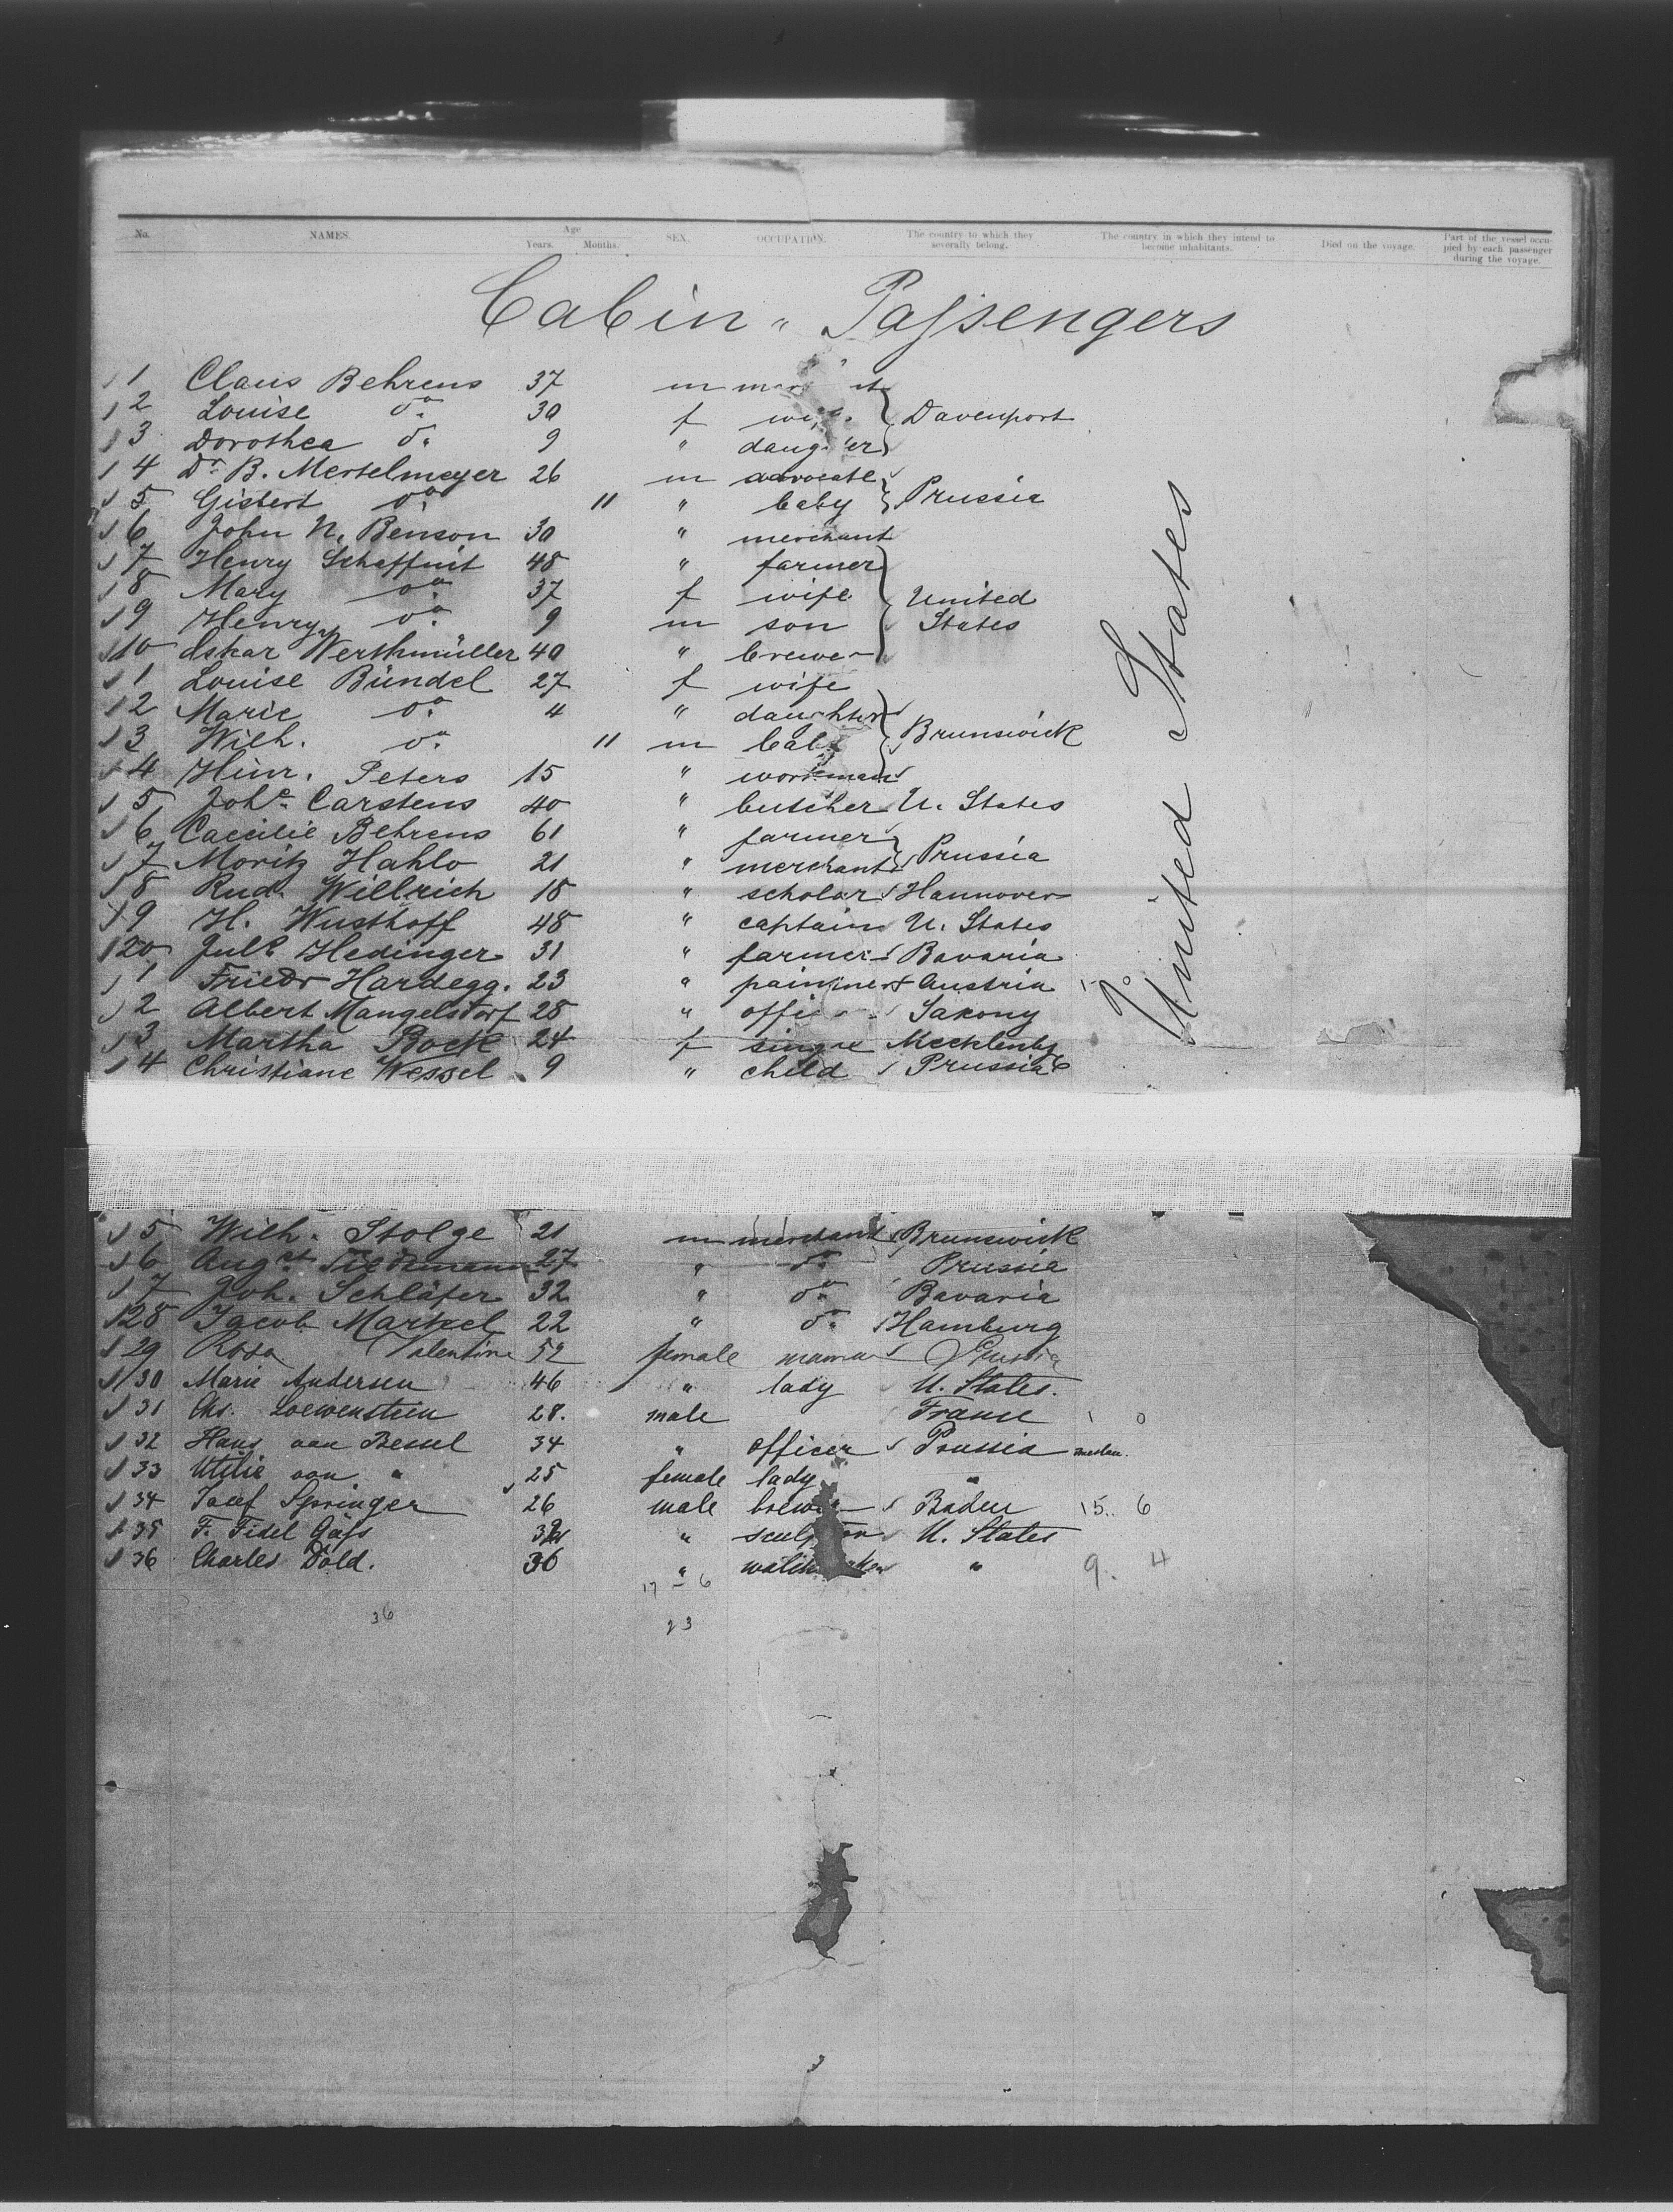 No. NAMES. Age Years. Months. SEX. OCCUPATION. The country to which they severally belong. The country in which they intend to become inhabitants. Died on the voyage. Part of the vessel occupied by each passenger during the voyage.
Cabin " Passengers
1 Claus Behrens 37 m
2 Louise do 30 f Davenport
3 Dorothea do 9 "
4 Dr B. Mertelmeyer 26 m advocate
5 Gisbert do 11 " baby Prussia
6 John N. Benson 30 " merchant
7 Henry Schaffnit 48 " farmer
8 Mary do 37 f wife United
9 Henry do 9 m son States
10 Oskar Werthmüller 40 " brewer
1 Louise Bündel 27 f wife
2 Marie do 4 " daughter
3 Wilh. do 11 m baby Brunswick
4 Hinr. Peters 15 " workman
5 Johs Carstens 40 " butcher U. States
6 Caecilie Behrens 61 " farmer
7 Moritz Hahlo 21 " merchant Prussia
8 Rud. Willrich 18 " scholar Hannover
9 H. Wusthoff 48 " captain U. States
20 Juls Hedinger 31 " farmer Bavaria
1 Friedr Hardegg. 23 " Austria
2 Albert Mangelsdorf 28 " Saxony
3 Martha Bock 24 f single Mecklenbg
4 Christiane Wessel 9 " child Prussia
United States
5 Wilh. Stolge 21 m merchant Brunswick
6 Augst Tiedemann 27 " do Prussia
7 Joh. Schläfer 32 " do Bavaria
28 Jacob Markel 22 " do Hamburg
29 Rosa Valentin 52 female mama
30 Marie Andersen 46 " lady U. States.
31 Chs. Loewenstein 28. male France 1 0
32 Hans van Bessel 34 " officer Prussia
33 Utilie van " 25 female lady "
34 Josef Springer 26 male brewer Baden 15.. 6
35 F. Fidel Gäss " sculptor U. States
36 Charles Dold. 36 " "  9. 4
17 - 6
36 23